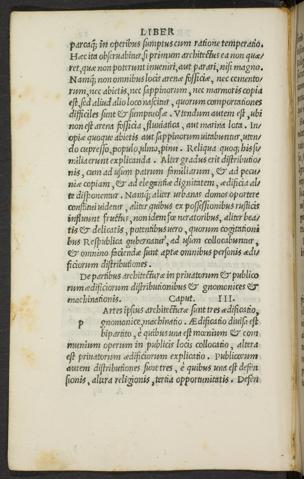 LIBER
parcaq́; in operibus sumptus cum ratione temperatio.
Hæc ita obseruabitur, si primum architectus ea non quæ
ret, quæ non poterunt inueniri, aut parari, nisi magno.
Namq́; non omnibus locis arenæ fossiciæ, nec cemento
rum, nec abietis, nec sappinorum, nec marmoris copia
est, sed aliud alio loco nascitur, quorum comportationes
difficiles sunt & sumptuosæ. Vtendum autem est, ubi
non est arena fossicia, fluuiatica, aut marina lota. In-
opiæ quoque abietis aut sappinorum uitabuntur, uten-
do cupresso, populo, ulmo, pinu. Reliqua quoq; his si/
milia erunt explicanda. Alter gradus erit distributio
nis, cum ad usum patrum familiarum, & ad pecu
niæ copiam, & ad elegantiæ dignitatem, ædificia al/
te disponentur. Namq́; aliter urbanas domos oportere
constitui uidetur, aliter quibus ex possessionibus rusticis
influunt fructus, non idem fœneratoribus, aliter bea/
tis & delicatis, potentibus uero, quorum cogitationi
bus Respublica gubernatur, ad usum collocabuntur,
& omnino faciendæ sunt aptæ omnibus personis ædi
ficiorum distributiones.
De partibus architecturæ in priuatorum & publico
rum ædificiorum distributionibus & gnomonices &
machinationis. Caput. III.
Artes ipsius architecturæ sunt tres ædificatio,
P gnomonice, machinatio. Ædificatio diuisa est
bipartito, è quibus una est mœnium & com
munium operum in publicis locis collocatio, altera
est priuatorum ædificiorum explicatio. Publicorum
autem distributiones sunt tres, è quibus una est defen
sionis, altera religionis, tertia opportunitatis. Defen